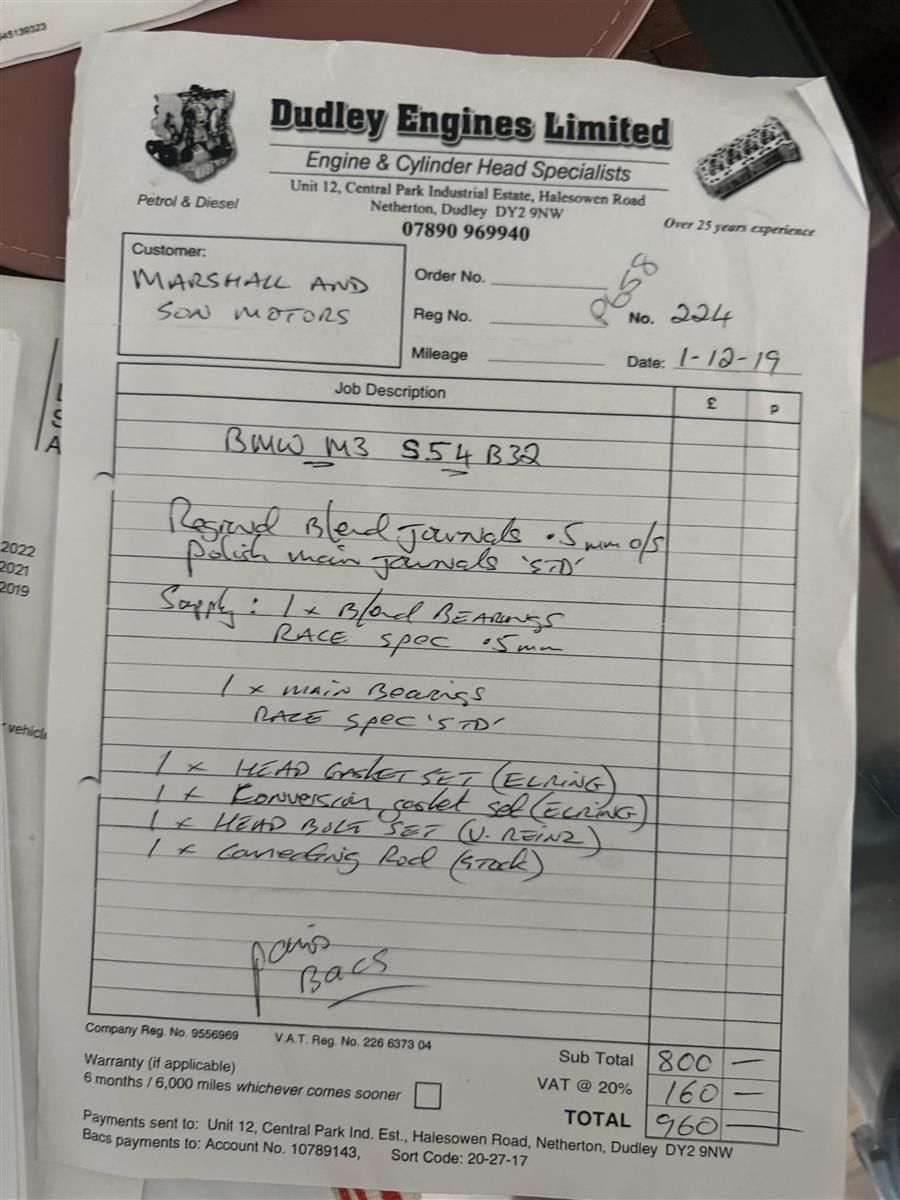 45139323
Dudley Engines Limited
Engine & Cylinder Head Specialists
Unit 12, Central Park Industrial Estate, Halesowen Road
Netherton, Dudley DY2 9NW
07890 969940
Petrol & Diesel
Over 25 years experience
Customer:
MARSHALL AND
SON MOTORS
Order No.
Reg No.
Mileage
No. 224
Date: 1-12-19
Job Description £ p
BMW M3 S54 B32
Regrind B/end Journals .5mm o/s
Polish main Journals 'STD'
Supply: 1 x B/end BEARINGS
RACE spec .5mm
1 x main Bearings
RACE spec 'STD'
1 x HEAD GASKET SET (ELRING)
1 x Konversion gasket set (ELRING)
1 x HEAD BOLT SET (V. REINZ)
1 x Connecting Rod (Stock)
paid
Bacs
Company Reg. No. 9556969 V.A.T. Reg. No. 226 6373 04
Warranty (if applicable)
6 months / 6,000 miles whichever comes sooner
Sub Total 800 —
VAT @ 20% 160 —
TOTAL 960 —
Payments sent to: Unit 12, Central Park Ind. Est., Halesowen Road, Netherton, Dudley DY2 9NW
Bacs payments to: Account No. 10789143, Sort Code: 20-27-17
2022
2021
2019